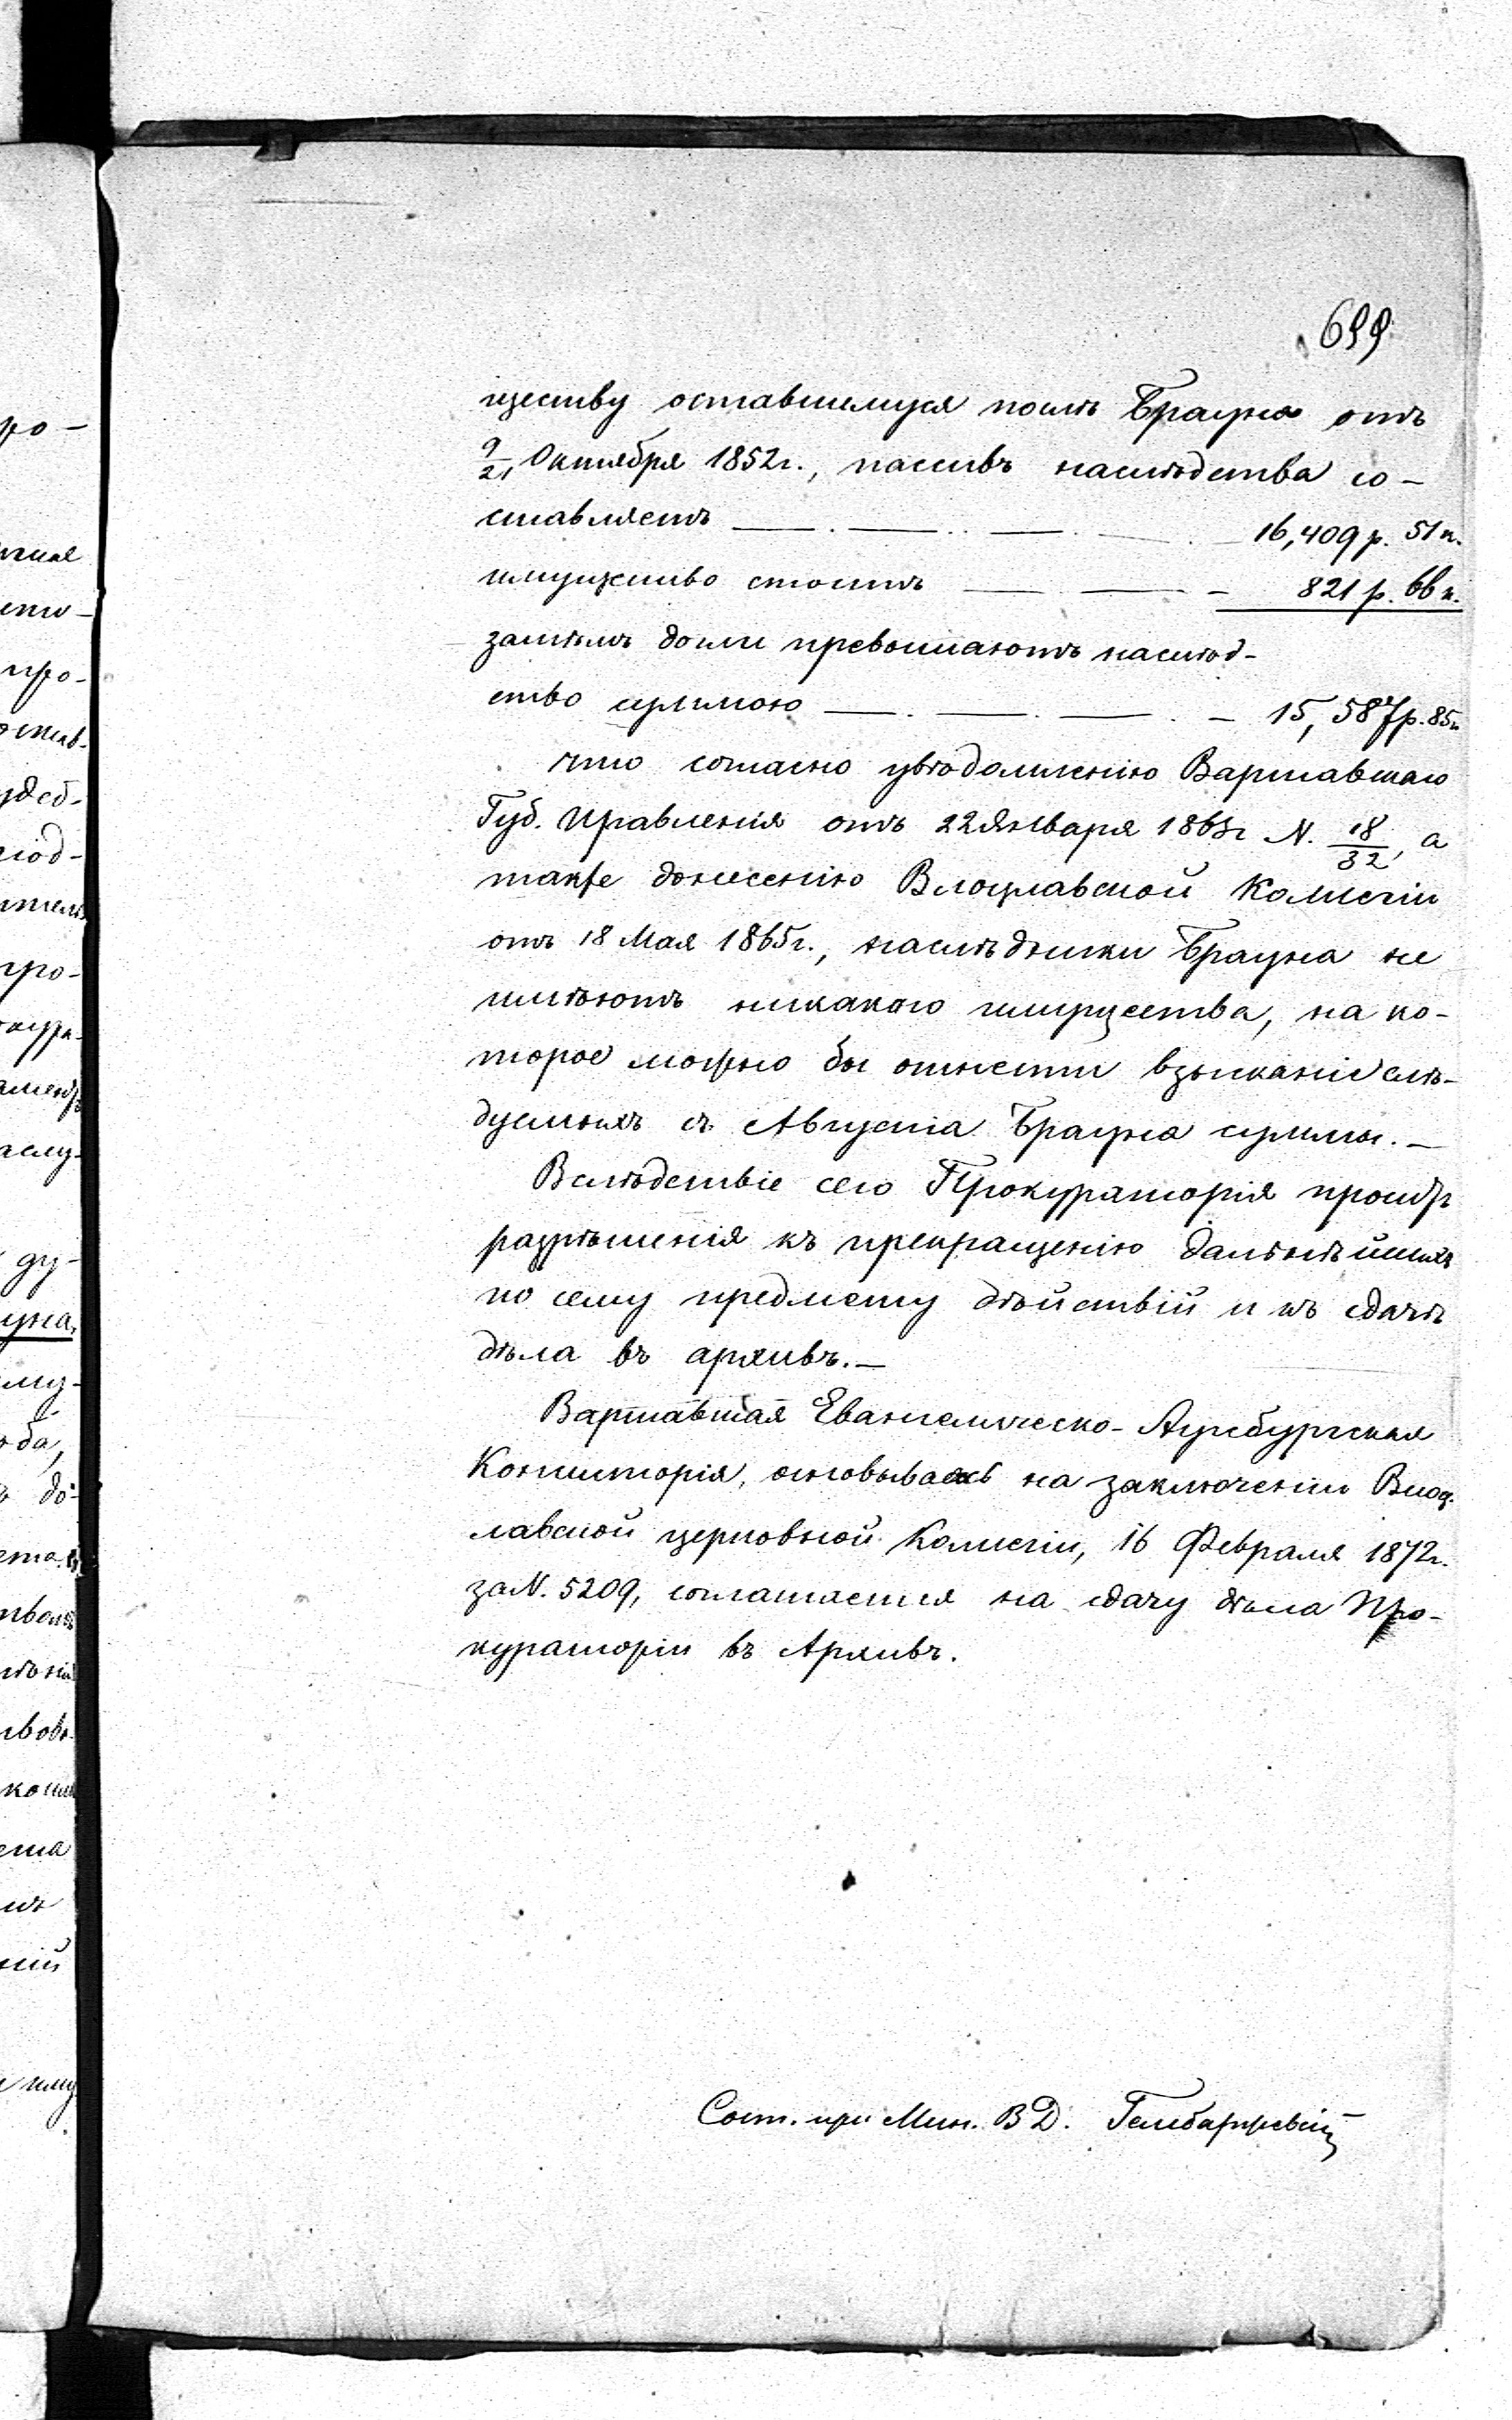 699
ществу оставшемуся послѣ Брауна отъ
9/21 Октября 1852г., пассивъ наслѣдства со-
ставляетъ — . — .. — . — 16,409 р. 51 к.
имущество стоитъ — — - 821 р. 66 к.
затѣмъ долги превышаютъ наслѣд-
ство суммою — . — . — . - 15,587 р. 85 к.
что согласно увѣдомленію Варшавскаго
Губ. Правленія отъ 22 Января 1863г N. 18/32, а
также донесенію Влоцлавской Коллегіи
отъ 18 Мая 1865г., наслѣдники Брауна не
имѣютъ никакого имущества, на ко-
торое можно бы отнести взысканіе слѣ-
дуемыхъ съ Августа Брауна суммы. —
Вслѣдствіе сего Прокураторія проситъ
разрѣшенія къ прекращенію дальнѣйшихъ
по сему предмету дѣйствій и къ сдачѣ
дѣла въ архивъ. —
Варшавская Евангелическо-Аугсбургская
Консисторія, основываясь на заключеніи Влоц-
лавской церковной Коллегіи, 16 Февраля 1872г.
за N. 5209, соглашается на сдачу дѣла Про-
кураторіи въ Архивъ.
Сост. при Мин. В Д.
ро-
про-
гро-
ду-
уна,
му-
ба,